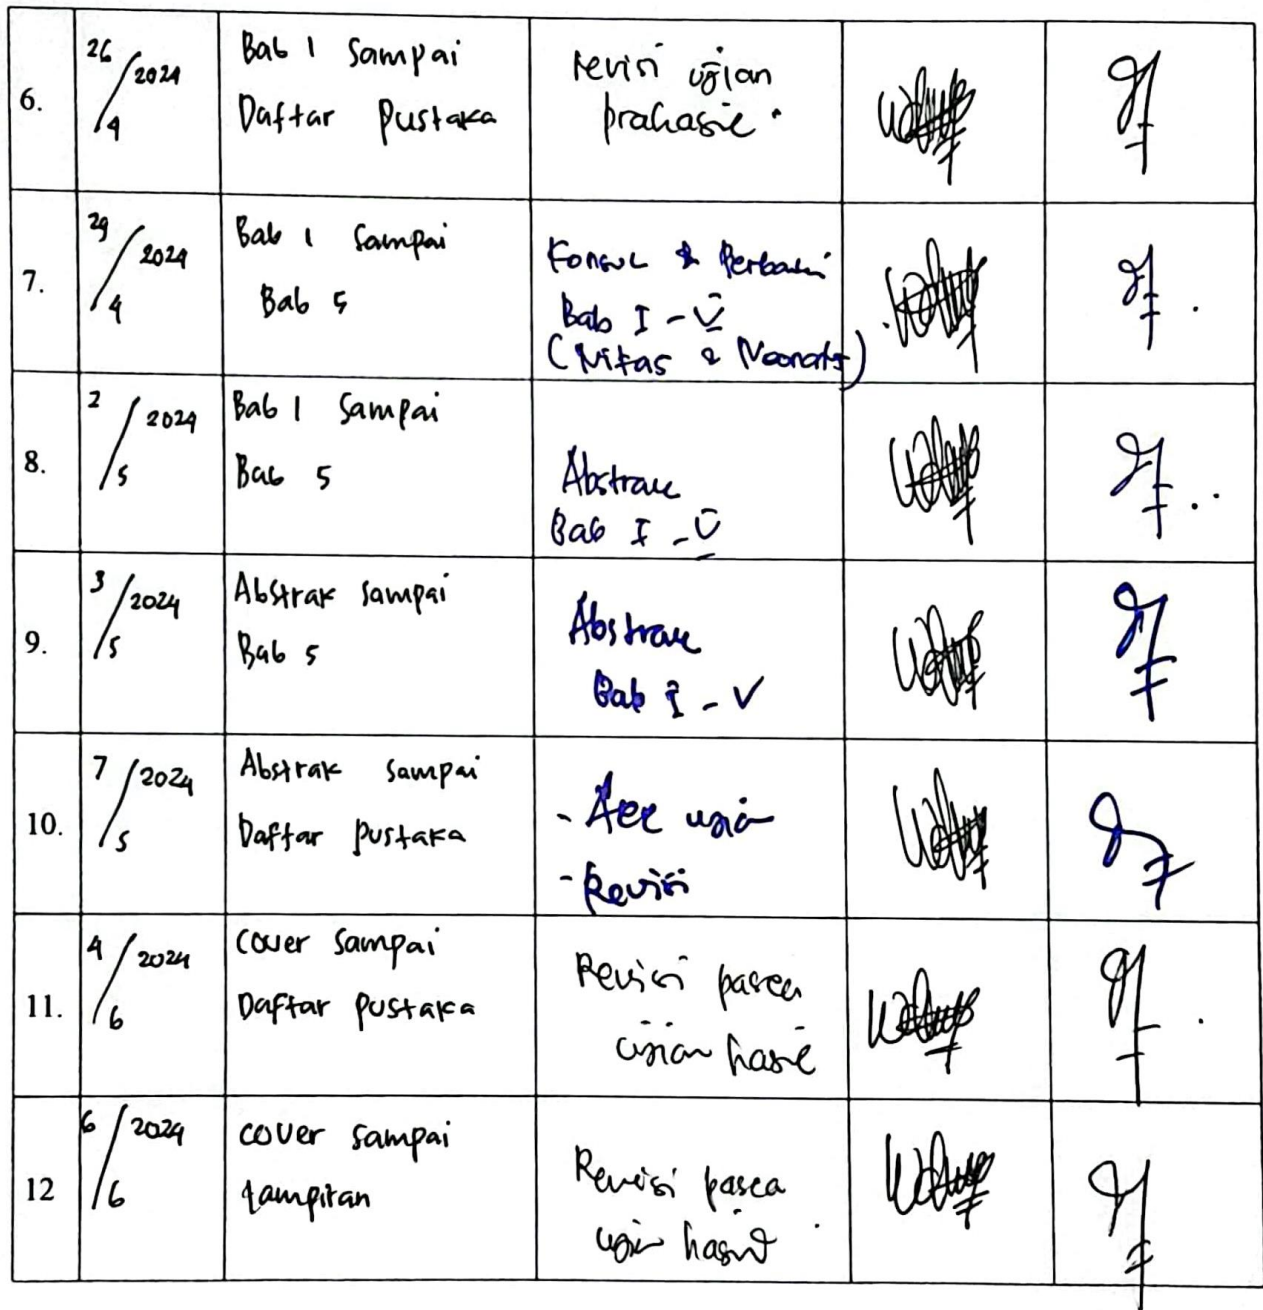 6.
26/4 2024
Bab 1 Sampai
Daftar Pustaka
revisi ujian
prahasil.
7.
29/4 2024
Bab 1 Sampai
Bab 5
Konsul & Perbaiki
Bab I - V
(Nifas & Neonatus)
8.
2/5 2024
Bab 1 Sampai
Bab 5
Abstrak
Bab I - V
9.
3/5 2024
Abstrak Sampai
Bab 5
Abstrak
Bab I - V
10.
7/5 2024
Abstrak Sampai
Daftar Pustaka
- Acc ujian
- Revisi
11.
4/6 2024
Cover Sampai
Daftar Pustaka
Revisi pasca
ujian hasil
12
6/6 2024
Cover Sampai
Lampiran
Revisi pasca
ujian hasil